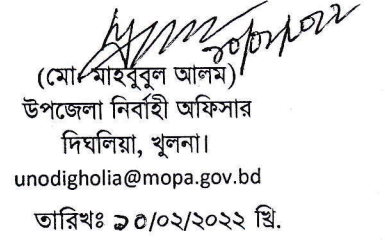 ১০/০২/২০২২
(মোঃ মাহবুবুল আলম)
উপজেলা নির্বাহী অফিসার
দিঘলিয়া, খুলনা।
unodigholia@mopa.gov.bd
তারিখঃ ১০/০২/২০২২ খ্রি.